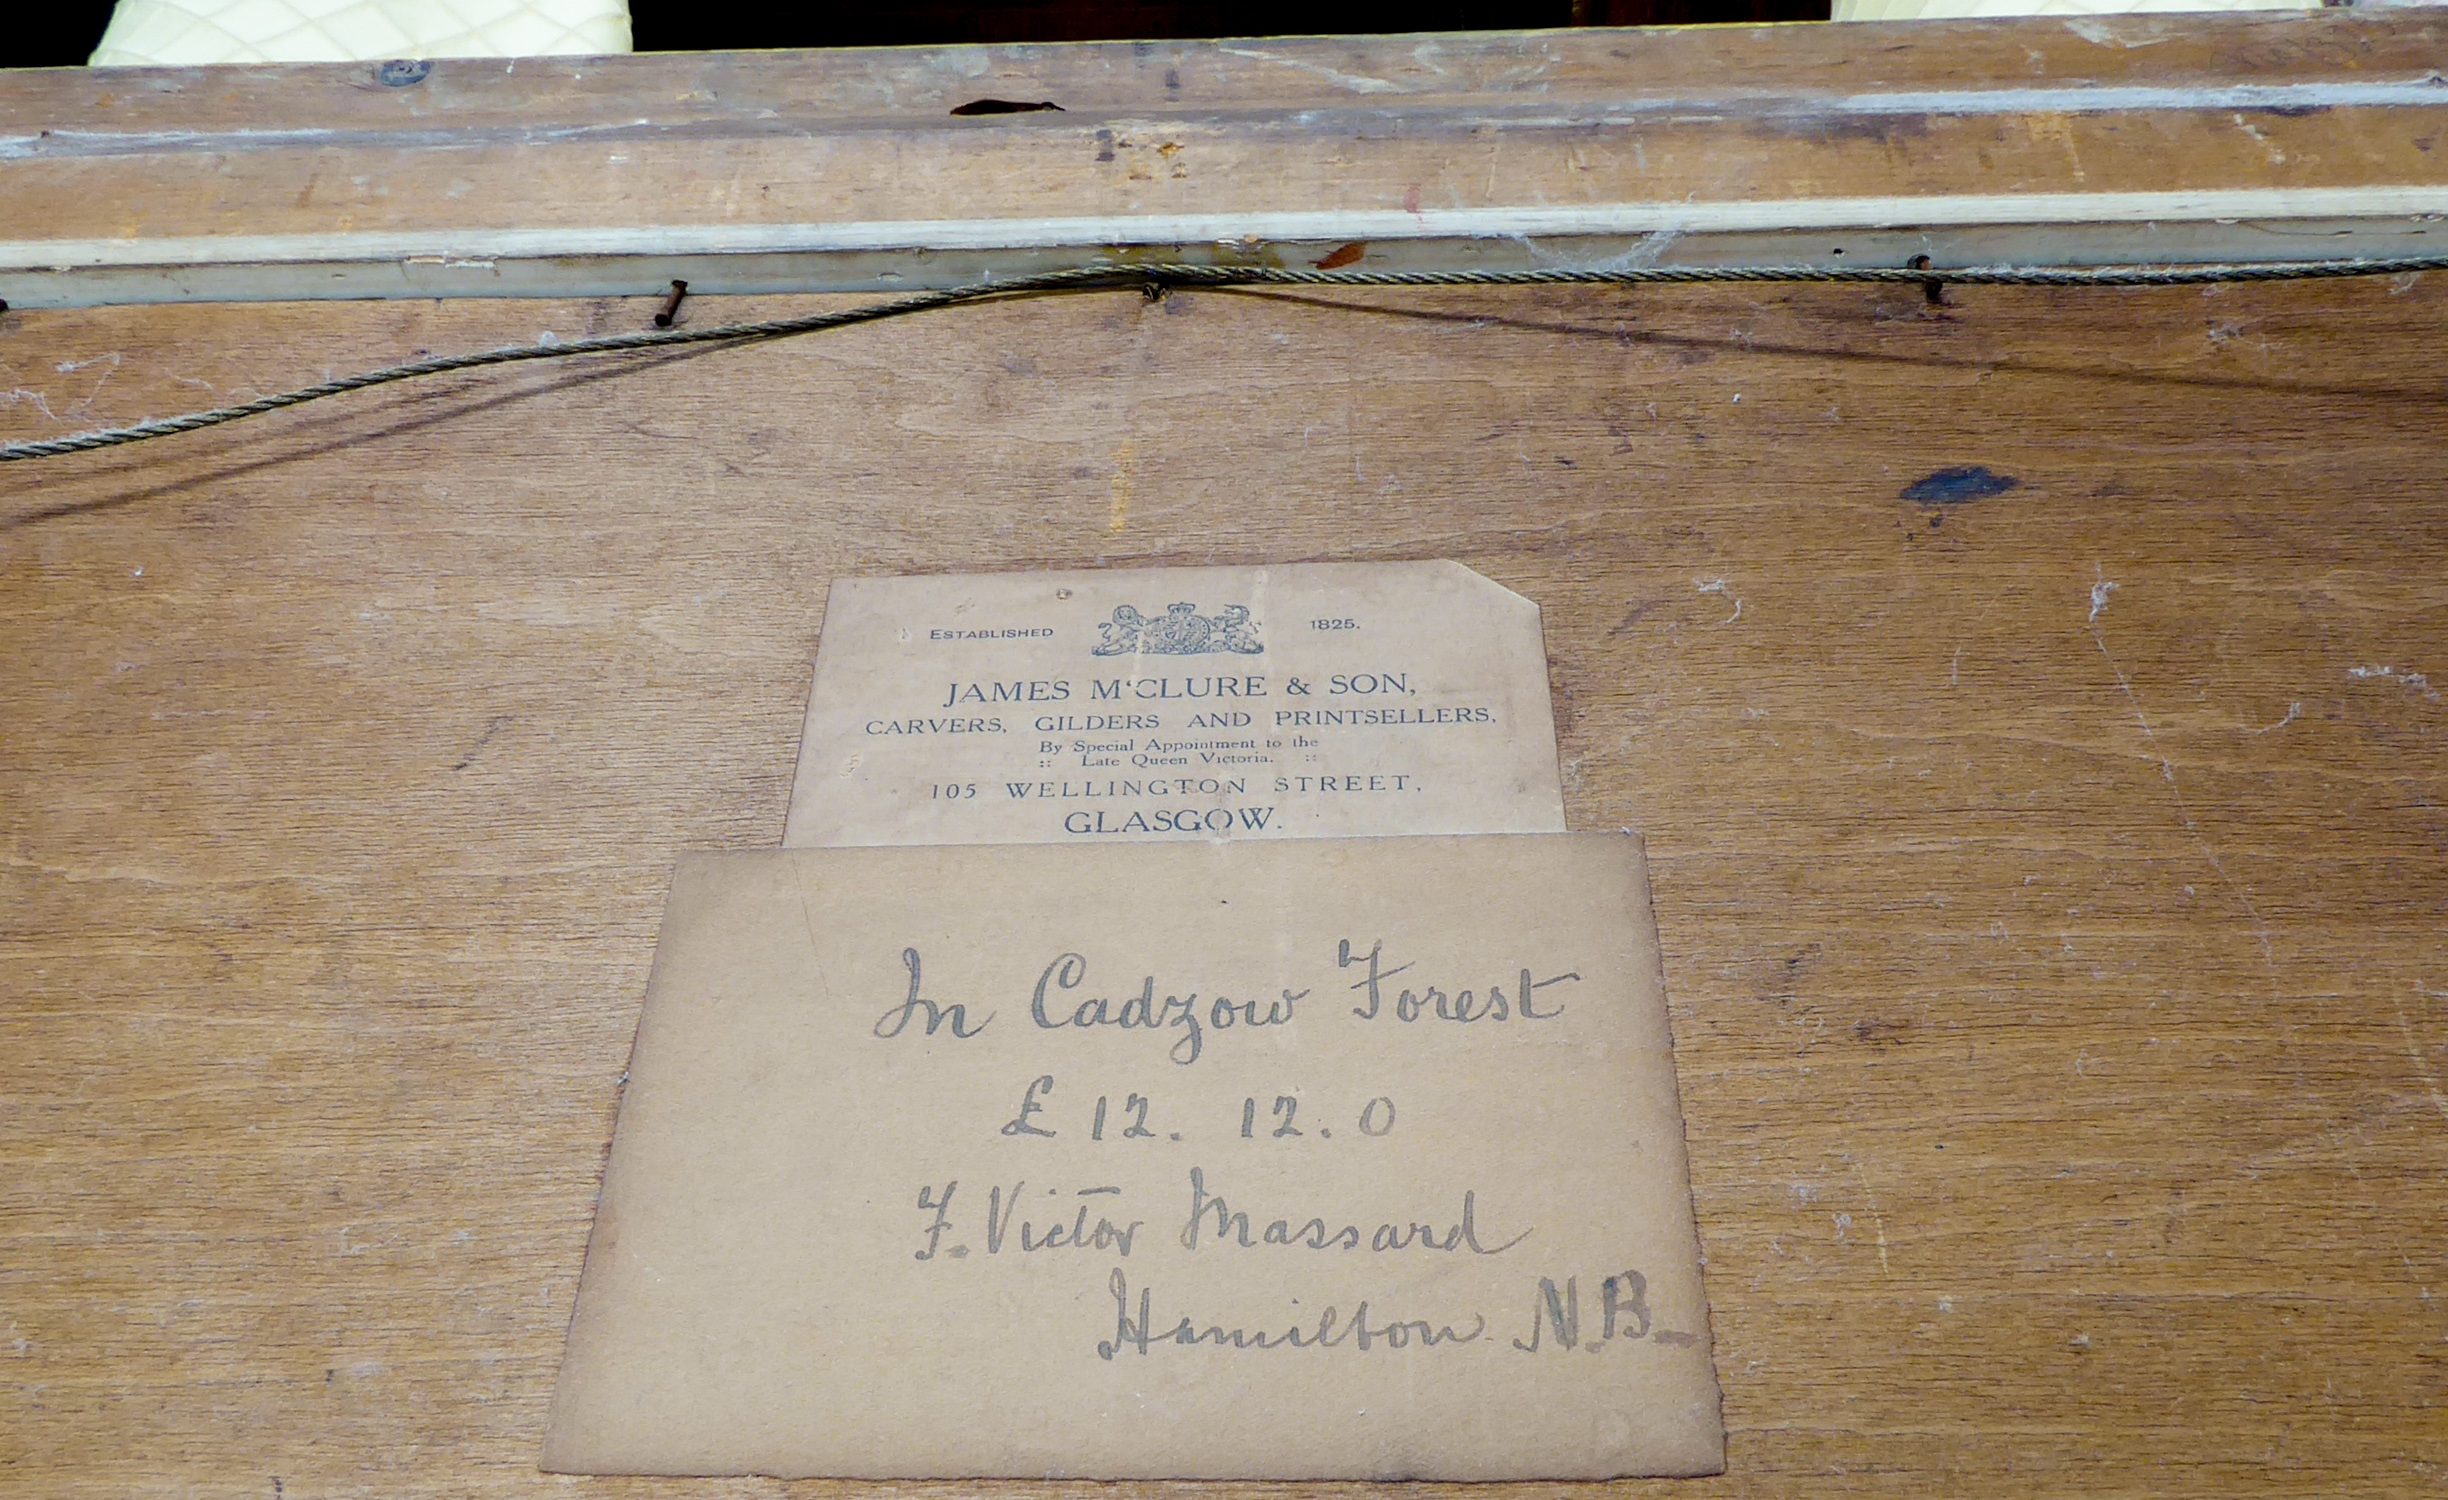 ESTABLISHED 1825.
JAMES M‘CLURE & SON,
CARVERS, GILDERS AND PRINTSELLERS,
By Special Appointment to the
:: Late Queen Victoria. ::
105 WELLINGTON STREET,
GLASGOW.
In Cadzow Forest
£ 12. 12. 0
F. Victor Massard
Hamilton. N.B.